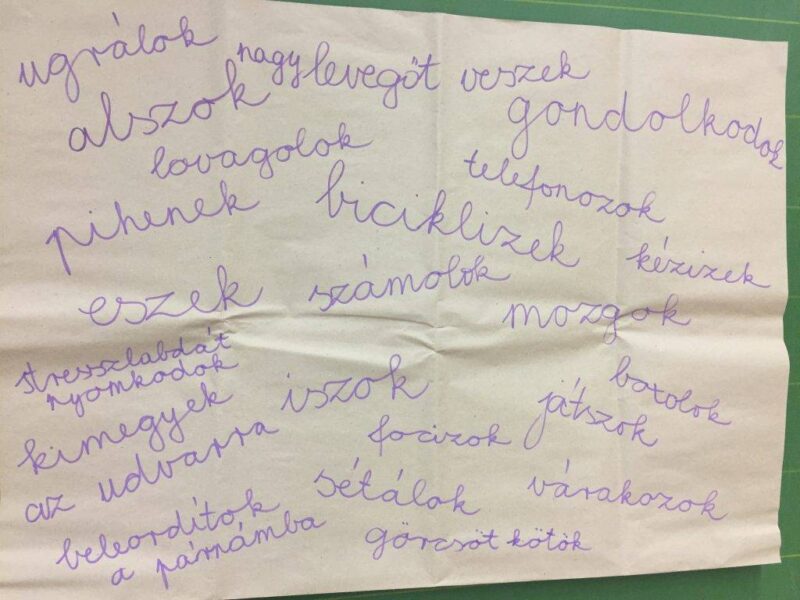 ugrálok
nagy levegőt veszek
alszok
gondolkodok
lovagolok
telefonozok
pihenek
biciklizek
kézizek
eszek
számolok
mozgok
stresszlabdát
nyomkodok
iszok
botolok
kimegyek
az udvarra
játszok
focizok
sétálok
várakozok
beleordítok
a párnámba
görcsöt kötök